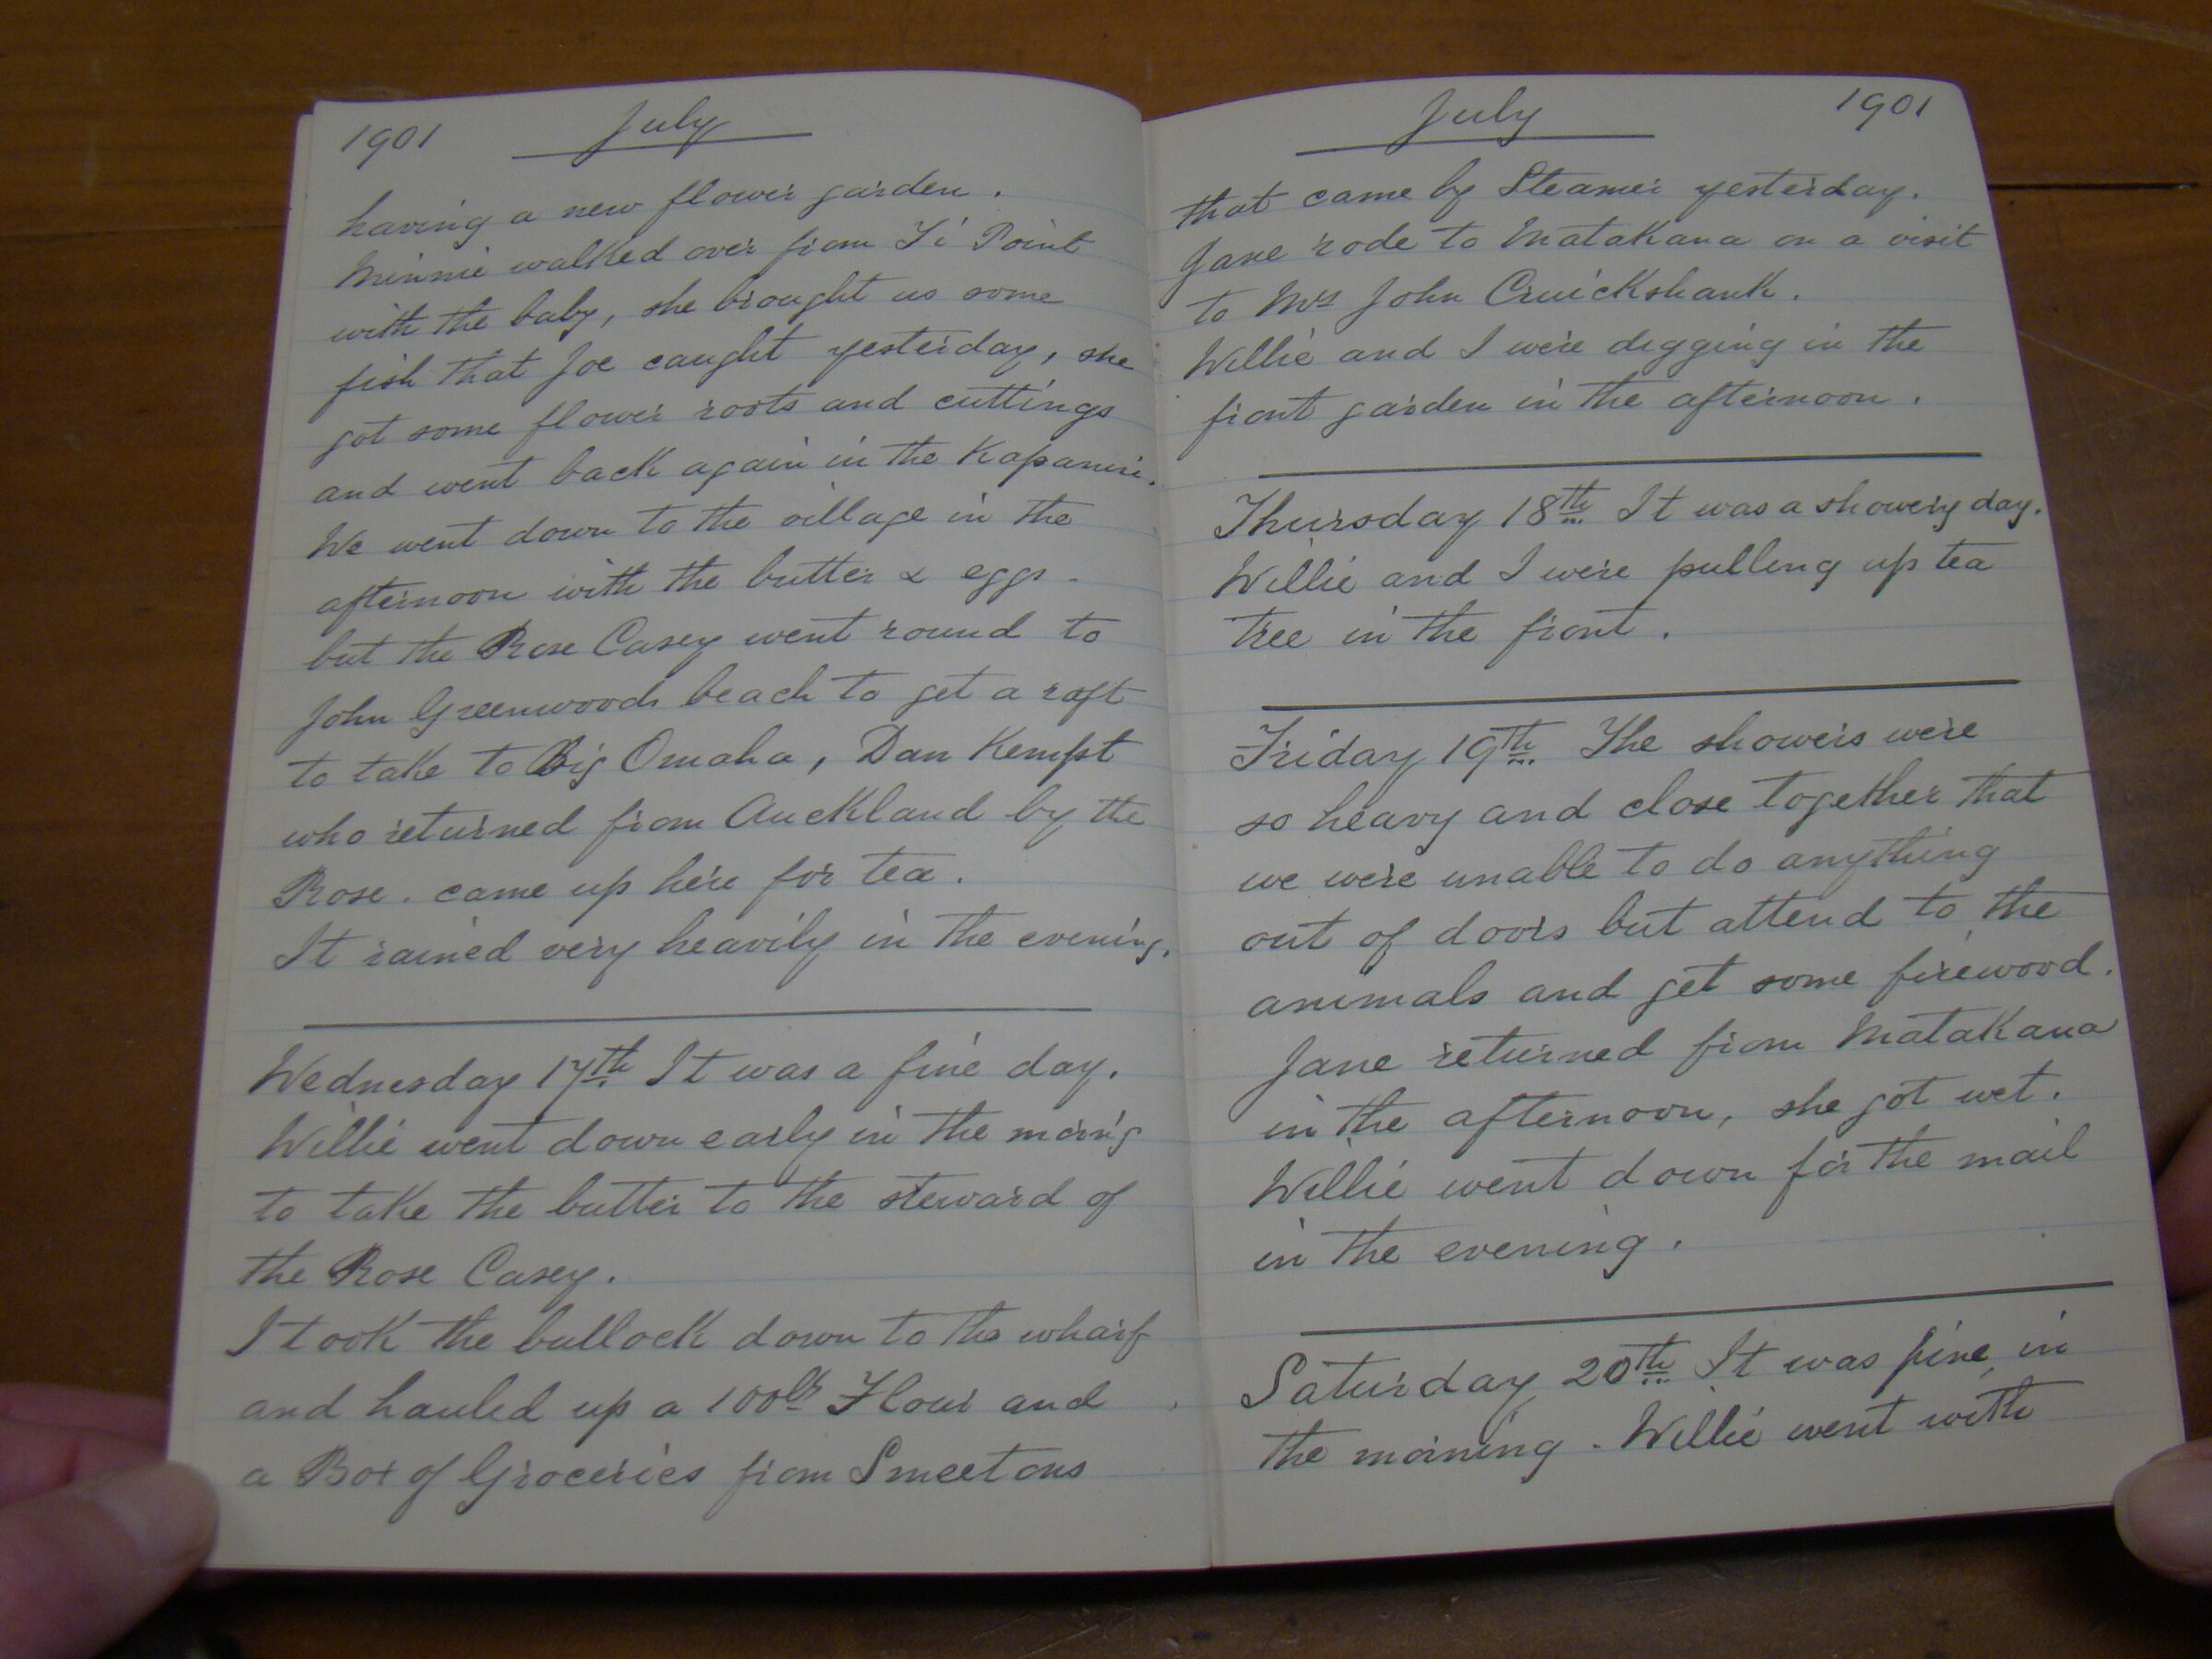 1901 July
having a new flower garden.
Minnie walked over from Ti Point
with the baby, she brought us some
fish that Joe caught yesterday, she
got some flower roots and cuttings
and went back again in the Kapanui.
We went down to the village in the
afternoon with the butter & eggs -
but the Rose Casey went round to
John Greenwoods beach to get a raft
to take to Big Omaha, Dan Kempt
who returned from Auckland by the
Rose. came up here for tea.
It rained very heavily in the evening.
Wednesday 17th It was a fine day.
Willie went down early in the morn'g
to take the butter to the steward of
the Rose Casey.
I took the bullock down to the wharf
and hauled up a 100lb Flour and
a Box of Groceries from Smeetons
July 1901
that came by Steamer yesterday.
Jane rode to Matakana on a visit
to Mrs John Cruickshank.
Willie and I were digging in the
front garden in the afternoon.
Thursday 18th It was a showery day.
Willie and I were pulling up tea
tree in the front.
Friday 19th The showers were
so heavy and close together that
we were unable to do anything
out of doors but attend to the
animals and get some firewood.
Jane returned from Matakana
in the afternoon, she got wet.
Willie went down for the mail
in the evening.
Saturday 20th It was fine in
the morning. Willie went with